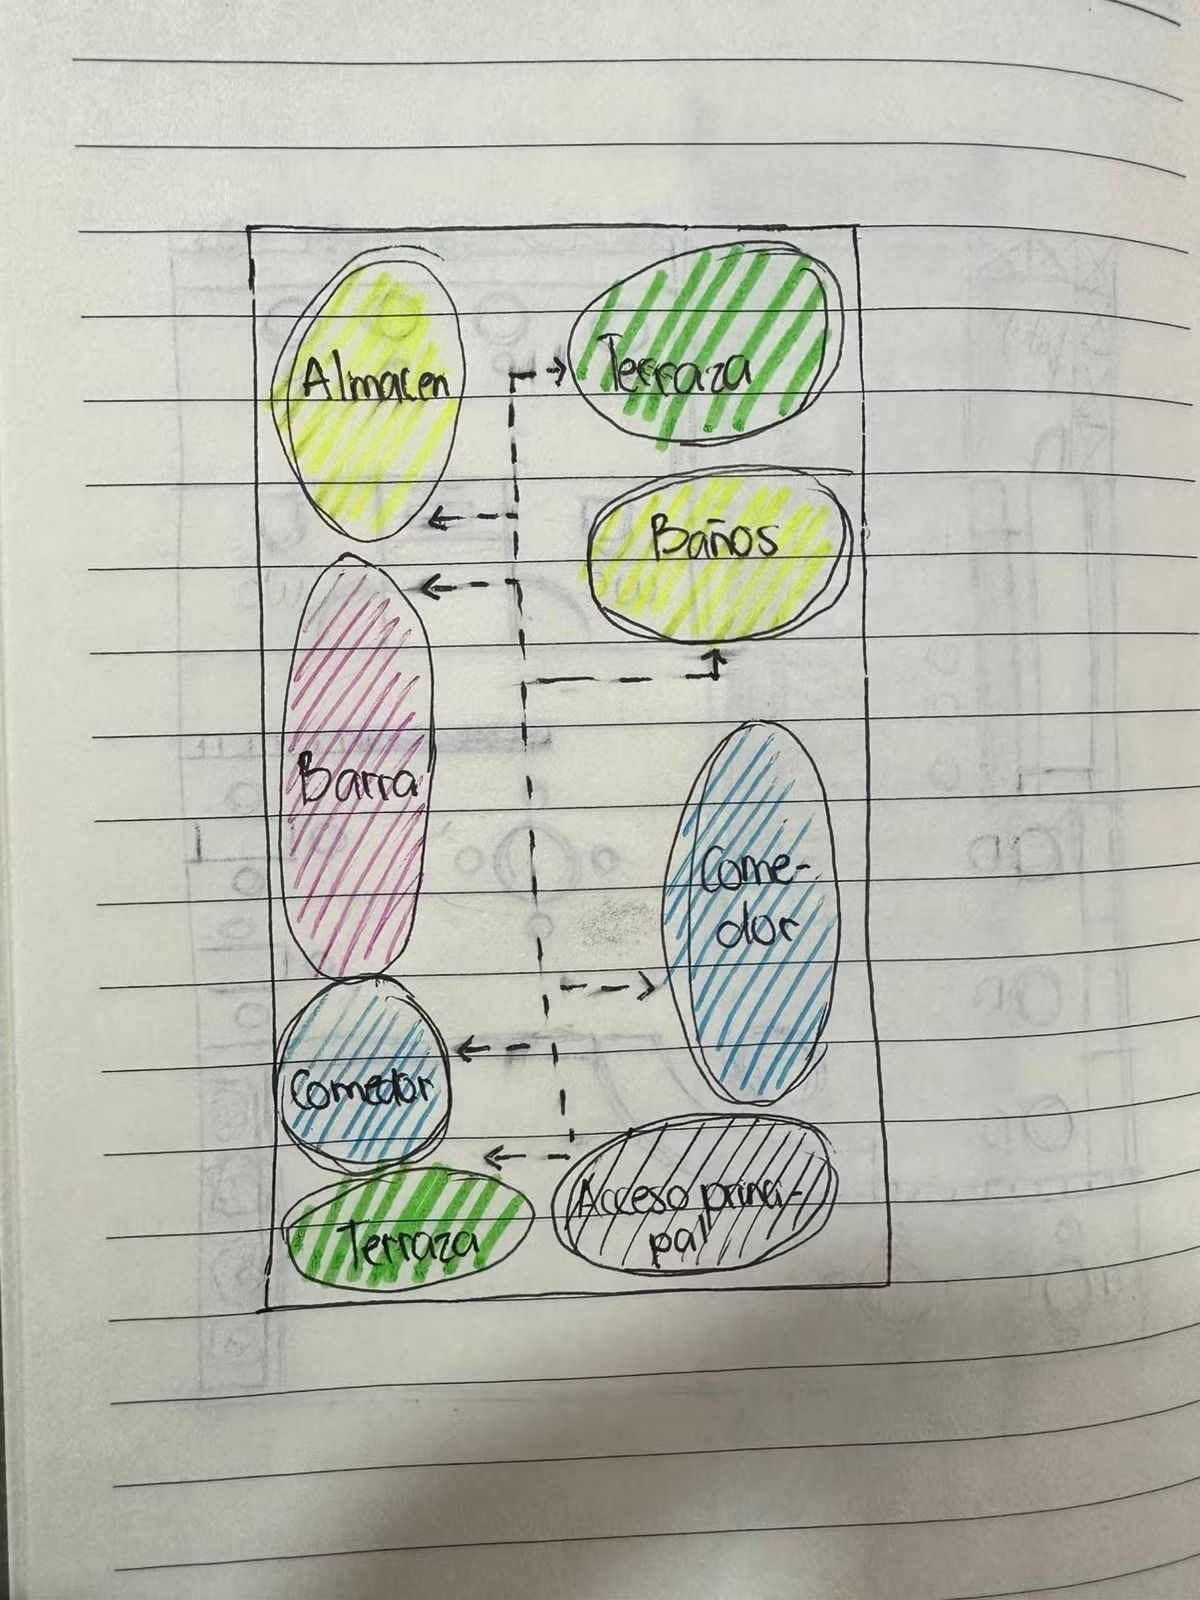 Almacen
Terraza
Baños
Barra
Come-
dor
Comedor
Terraza
Acceso princi-
pal